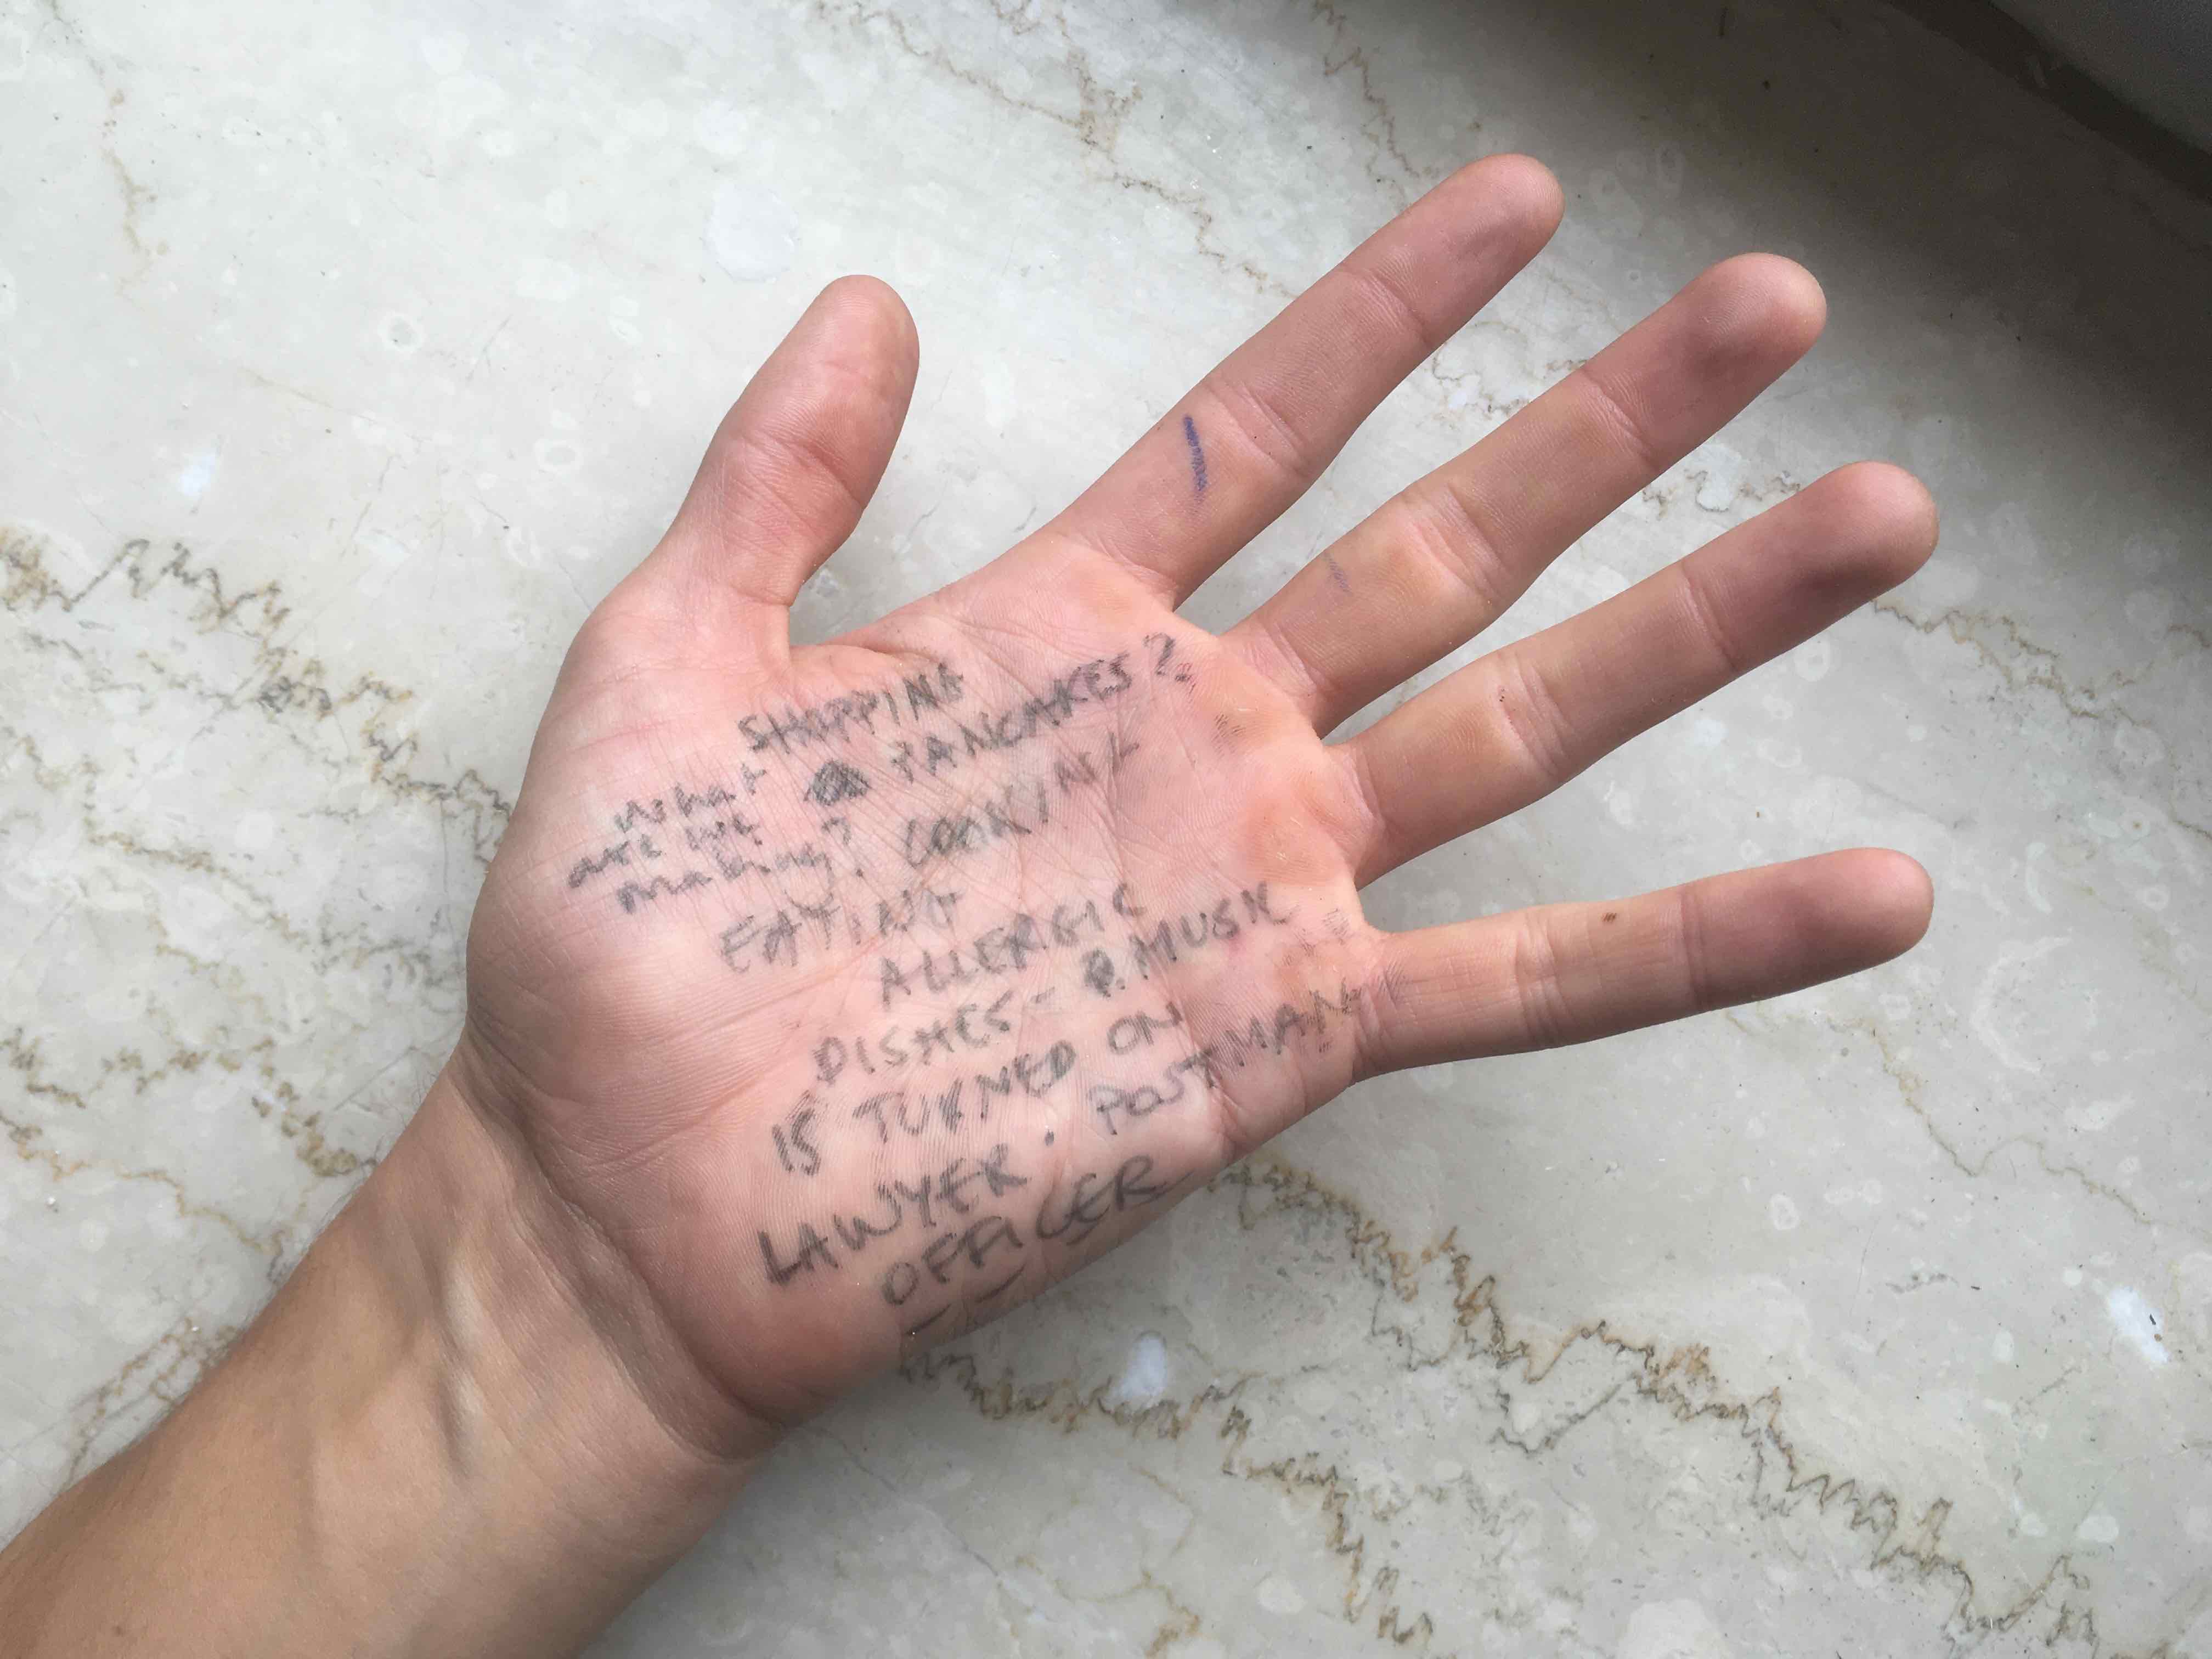 SHOPPING
What PANCAKES?
are we
making? COOKING
EATING
ALLERGIC
DISHES - P. MUSIC
IS TURNED ON
LAWYER. POSTMAN
OFFICER